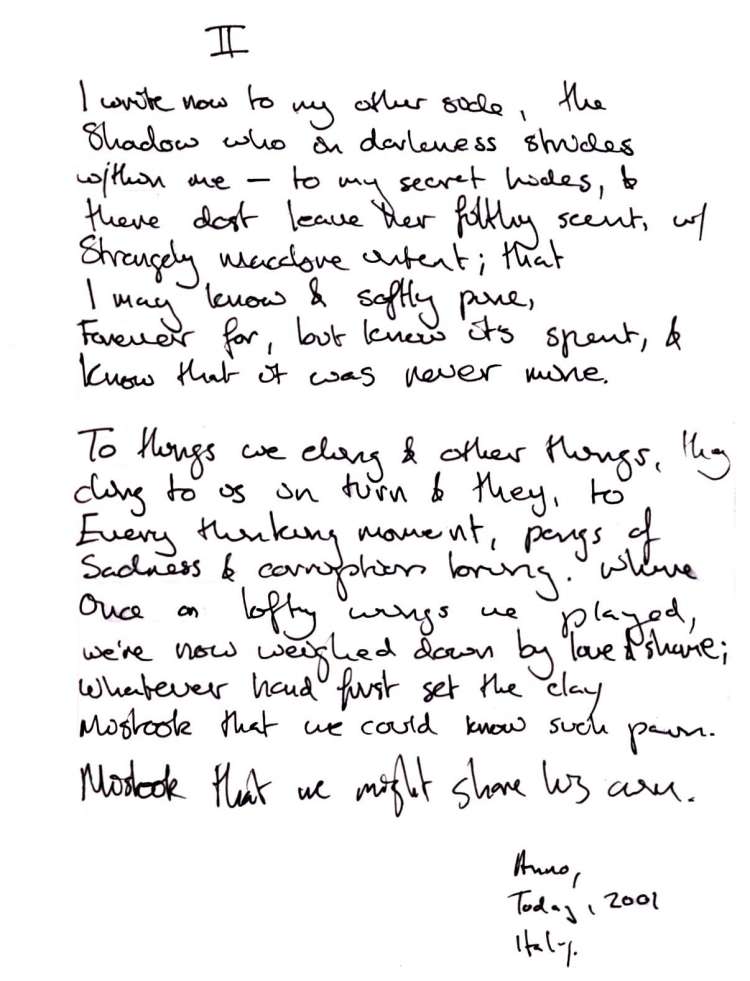 II
I write now to my other side, the
Shadow who in darkness strides
within me – to my secret hides, &
there dost leave her filthy scent, w/
Strangely macabre intent; that
I may know & softly pine,
Forever for, but know it's spent, &
know that it was never mine.
To things we cling & other things, they
cling to us in turn & they, to
Every thinking moment, pangs of
Sadness & corruption bring. Where
Once on lofty wings we played,
we're now weighed down by love & shame;
Whatever hand first set the clay
Mistook that we could know such pain.
Mistook that we might share his aim.
Anno,
Today, 2001
Italy.